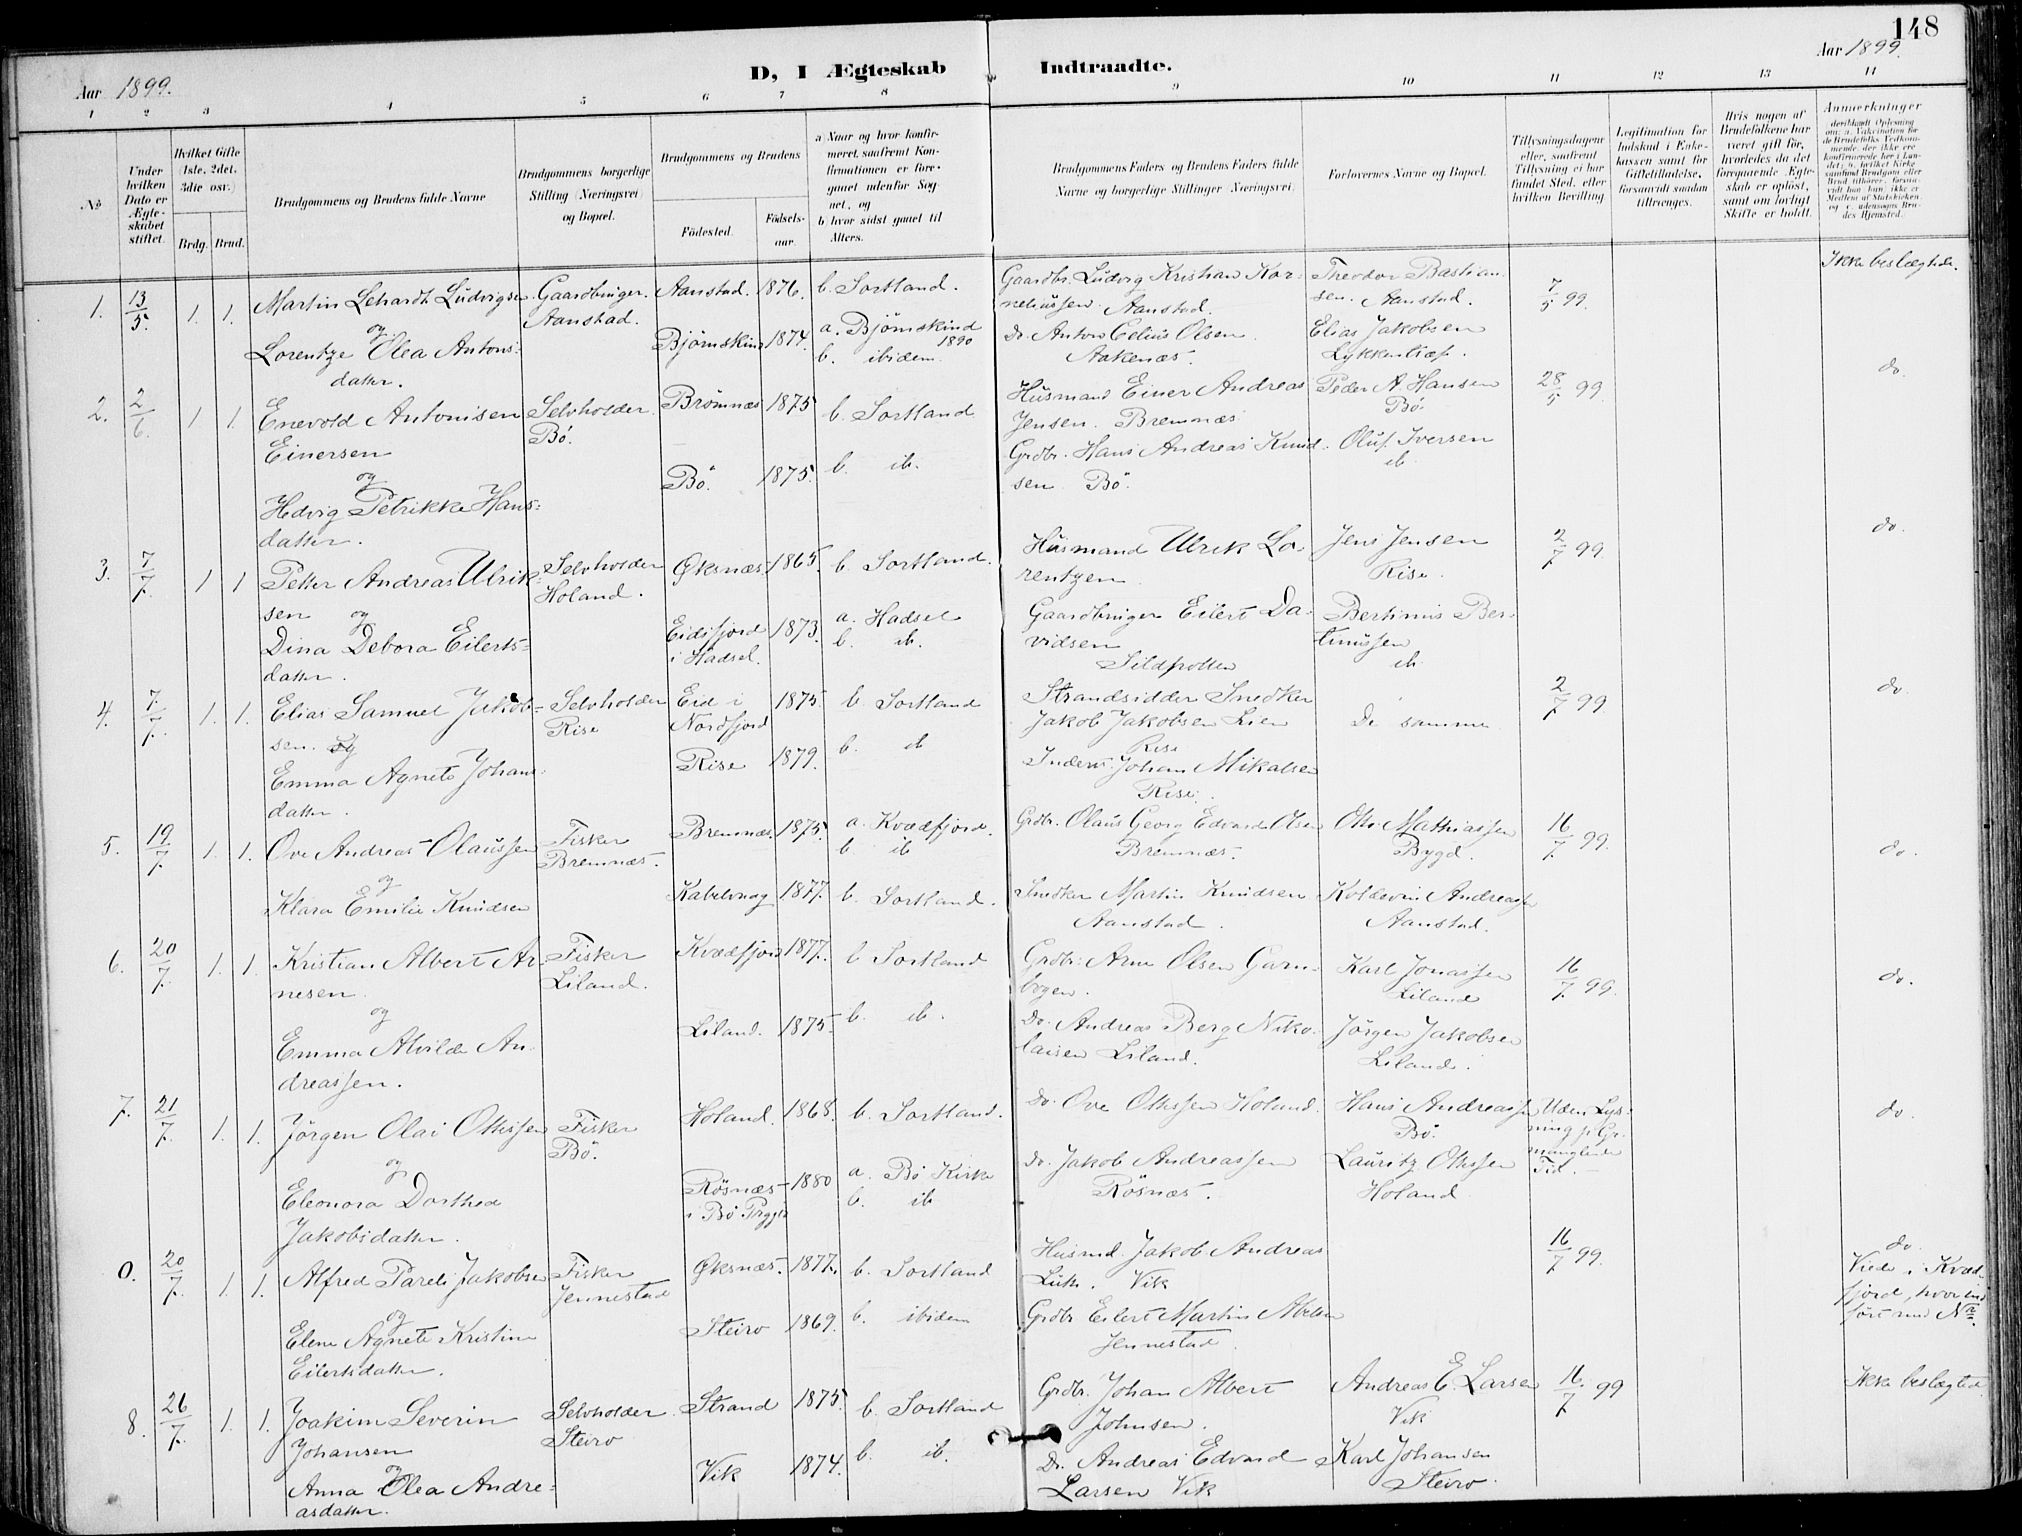 148
Aar 1899.
D, I Ægteskab Indtraadte.
Aar 1899.
1 2 3 4 5 6 7 8 9 10 11 12 13 14
№
Under hvilken Dato er Ægteskabet stiftet.
Hvilket Gifte (1ste, 2det, 3die osv.)
Brdg. Brud.
Brudgommens og Brudens fulde Navne
Brudgommens borgerlige Stilling (Næringsvei) og Bopæl.
Brudgommens og Brudens
Fødested.
Fødsels-aar.
a Naar og hvor konfirmeret, saafremt Konfirmationen er foregaaet udenfor Sognet, og
b hvor sidst gaaet til Alters.
Brudgommens Faders og Brudens Faders fulde Navne og borgerlige Stillinger (Næringsvei).
Forlovernes Navne og Bopæl.
Tillysningsdagene eller, saafremt Tillysning ei har fundet Sted, efter hvilken Bevilling.
Legitimation for Indskud i Enkekassen samt for Giftetilladelse, forsaavidt saadan tiltrænges.
Hvis nogen af Brudefolkene har været gift før, hvorledes da det foregaaende Ægteskab er opløst, samt om lovligt Skifte er holdt.
Anmerkninger
1. 13/5. 1. 1. Martin Lehardt Ludvigsen Gaardbruger. Aanstad. 1876. b. Sortland. Gaardbr. Ludvig Kristian Kor- Theodor Bastian- 7/5 99. Ikke beslegtede.
og Aanstad. neliussen. Aanstad. sen. Aanstad.
Lorentze Olea Antons- Bjørnskind 1874. a. Bjørnskind 1890 Do. Anton Celius Olsen Elias Jakobsen
datter. b. ibidem. Aakenæs. Lykkentræf.
2. 2/6. 1 1. Enevold Antonisen Selvholder Bremnæs 1875 b. Sortland Husmand Einer Andreas Peder A. Hansen 28/5 99. do.
Einersen Bø. Jensen. Bremnæs Bø.
og Bø. 1875. b. ib. Grdbr. Hans Andreas Knud- Oluf Iversen
Hedvig Petrikke Hans- sen Bø. ib
datter.
3. 7/7. 1 1 Petter Andreas Ulrik- Selvholder Øksnæs. 1865. b. Sortland. Husmand Ulrik Lo- Jens Jensen 2/7 99. do.
sen og Holand. rentzen. Rise.
Dina Debora Eilerts- Eidsfjord 1873. a. Hadsel Gaardbruger Eilert Da- Bertinius Ber-
datter. i Hadsel. b. ib. vidsen tinussen
Sildpollen ib
4. 7/7. 1. 1. Elias Samuel Jakob- Selvholder Eid i 1875. b. Sortland Strandsidder Snedker De samme 2/7 99 do.
sen. og Rise Nordfjord Jakob Jakobsen Lien
Emma Agnete Johans- Rise 1879. b. ib Rise
datter. Inderst. Johan Mikalsen
Rise.
5. 19/7. 1. 1. Ove Andreas Olaussen Fisker Bremnæs. 1875. a. Kvædfjord. Grdbr. Olaus Georg Edvard Olsen Otto Mathiassen 16/7 99. do.
og Bremnæs. b. ib Bremnæs. Bygd.
Klara Emilie Knudsen Kabelvaag 1877. b. Sortland. Snedker Martin Knudsen Koldevin Andreassen
Aanstad. Aanstad.
6. 20/7. 1. 1. Kristian Albert Ar- Fisker Kvædfjord 1877. b Sortland Grdbr. Arne Olsen Garn- Karl Jonassen 16/7 99. do.
nesen. Liland. bogen. Liland
og Liland. 1875. b. ib. Do. Andreas Berg Niko- Jørgen Jakobsen
Emma Alvilde An- laisen Liland. Liland.
dreassen.
7. 21/7. 1. 1. Jørgen Olai Ottessen Fisker Holand. 1868. b. Sortland. Do. Ove Ottessen Holand. Hans Andreassen Uden Lys- do.
og Bø. Bø. ning p. Gr.
Eleonora Dorthea Røsnæs 1880 a. Bø Kirke Do. Jakob Andreassen Lauritz Ottessen manglende
Jakobsdatter. i Bø Prggld b. ib Røsnæs. Holand Tid.
0. 20/7. 1. 1. Alfred Pareli Jakobsen Fisker Øksnæs. 1877. b. Sortland Husmd. Jakob Andreas 16/7 99. do.
og Jennestad Vik Viede i Kvæd-
Elene Agnete Kristine Steiro 1869. b. ibidem Grdbr. Eilert Martin Abelsen fjord, hvor ind-
Eilertsdatter. Jennestad. ført med Nr.
8. 26/7. 1. 1. Joakim Severin Selvholder Strand 1875. b. Sortland Grdbr. Johan Albert Andreas E. Larsen 16/7 99 Ikke beslegted
Johansen Steiro Johnsen. Vik
og Vik 1874. b. ib. Do. Andreas Edvard Karl Johansen
Anna Olea Andre- Larsen Vik Steiro.
asdatter.